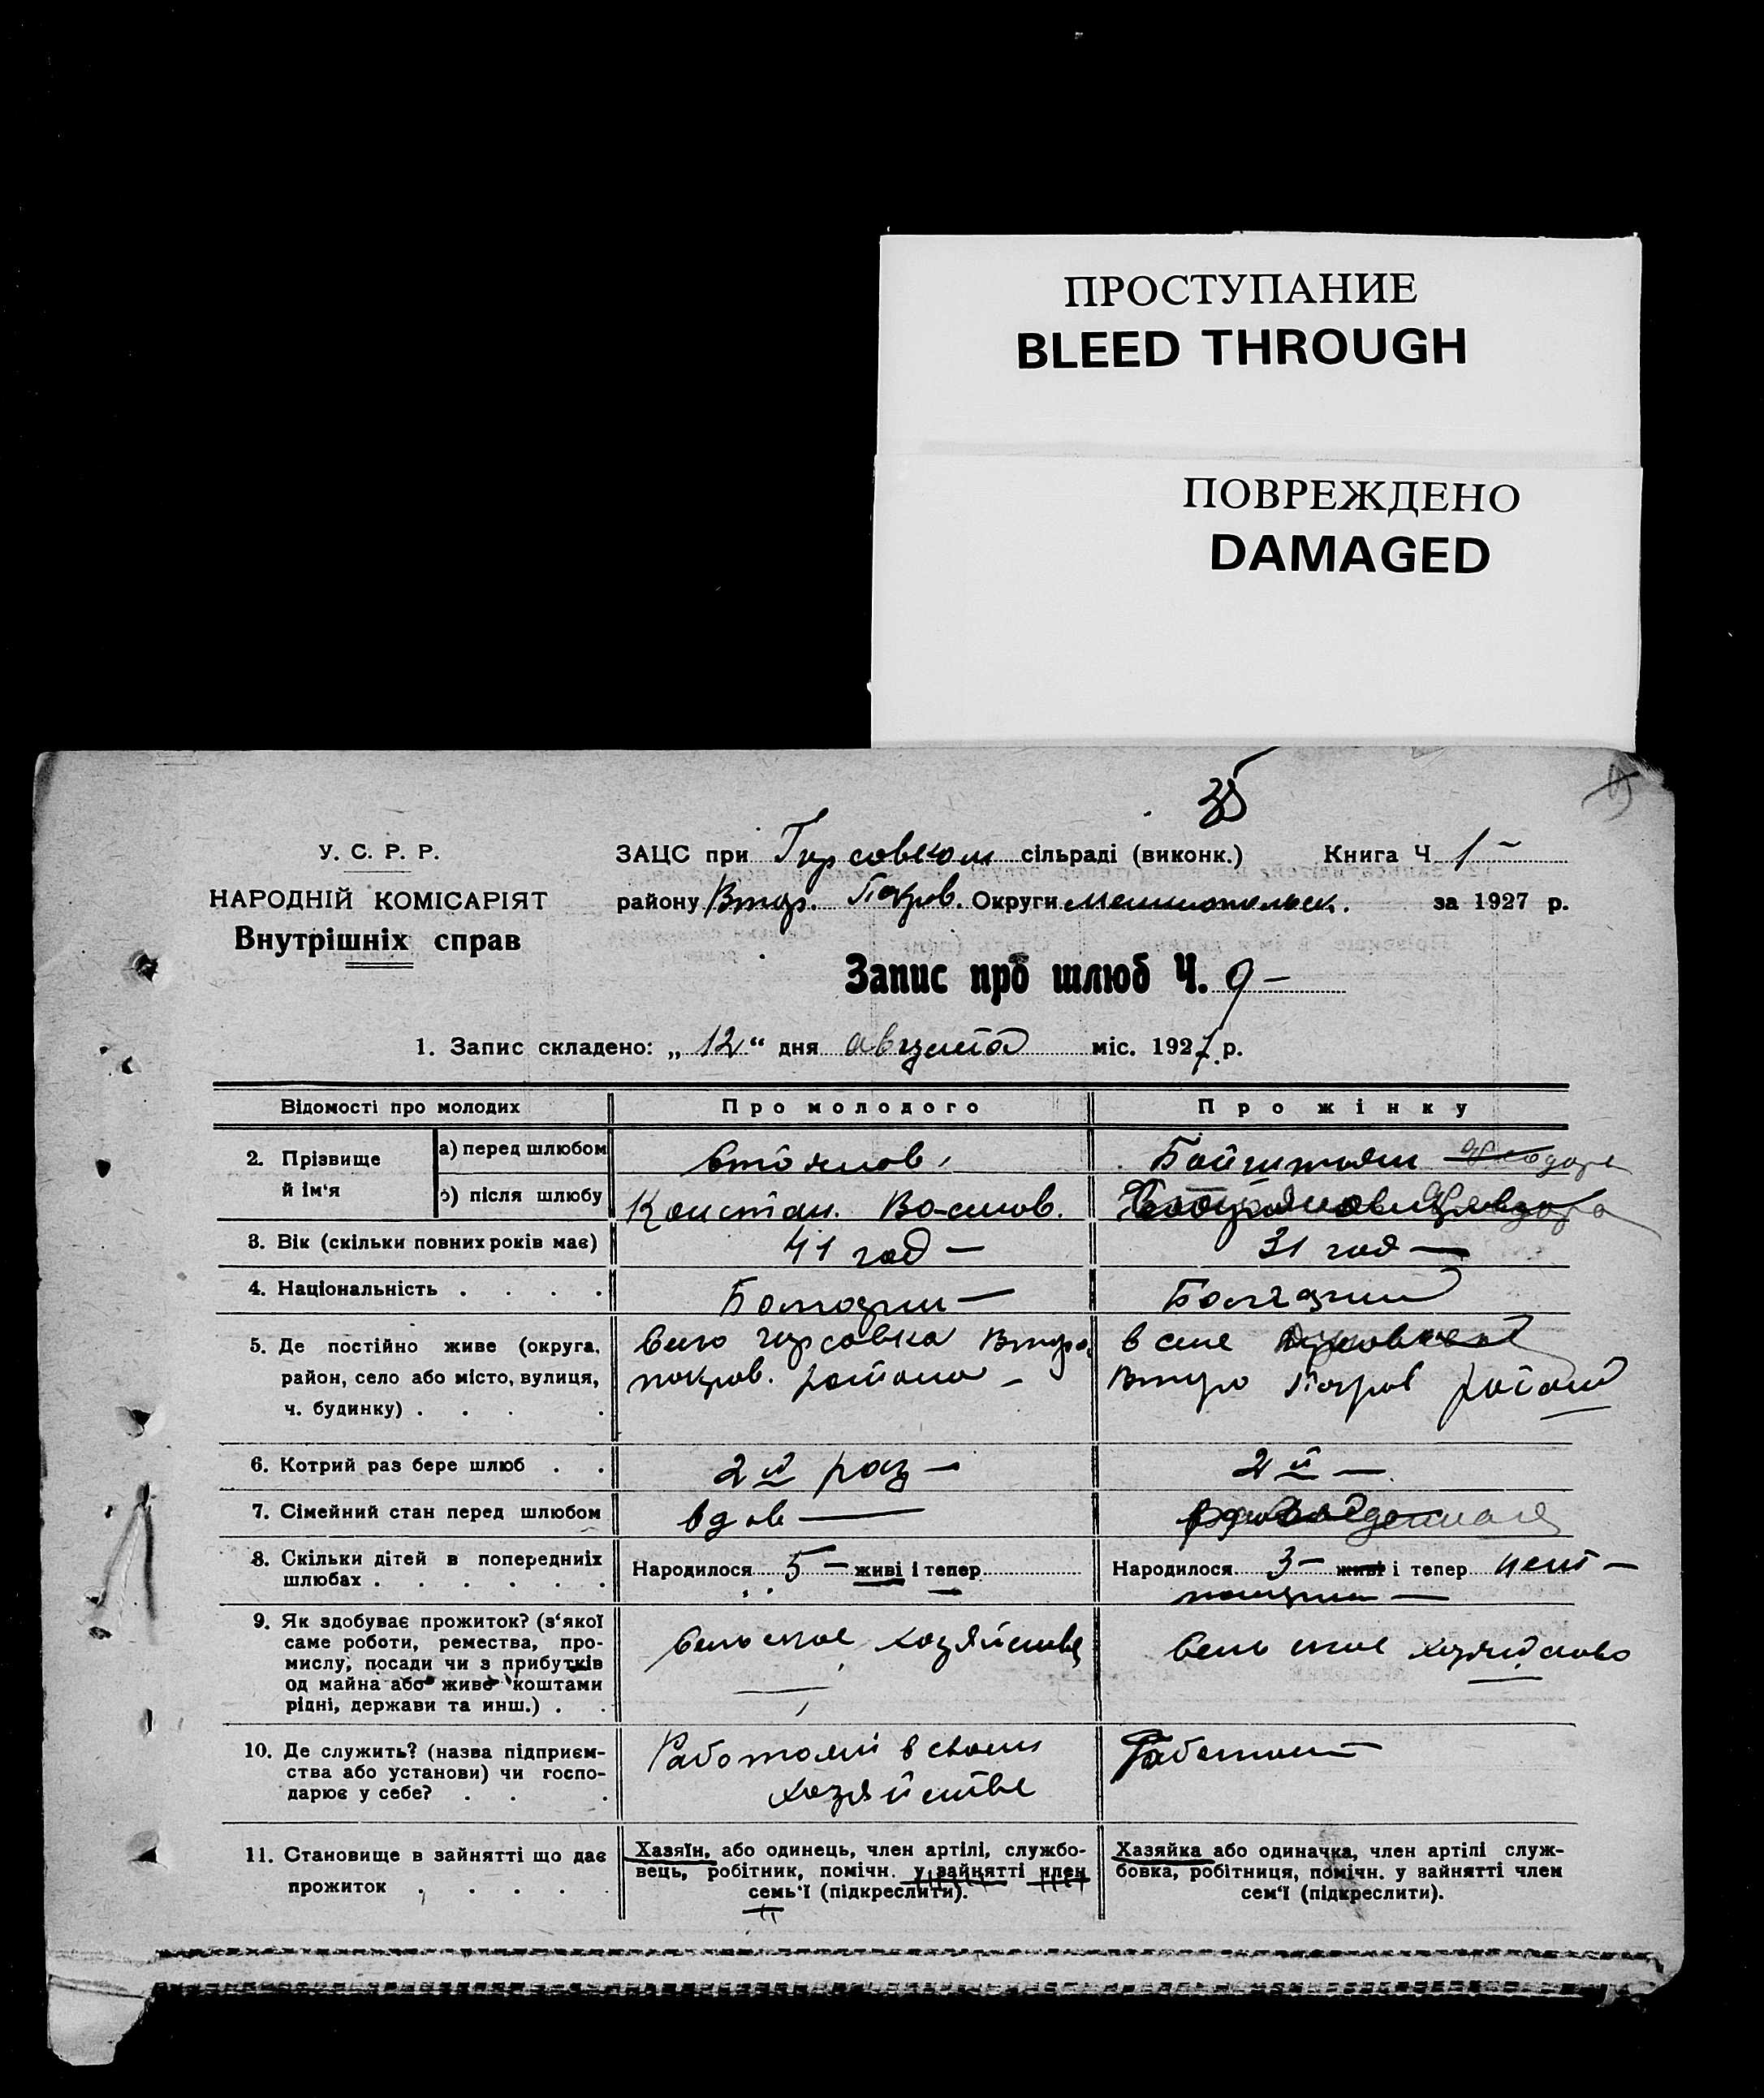 ПРОСТУПАНИЕ
BLEED THROUGH
ПОВРЕЖДЕНО
DAMAGED
35
У. С. Р. Р.
НАРОДНІЙ КОМІСАРІЯТ
Внутрішніх справ
ЗАЦС при Гирсовском сільраді (виконк.) Книга Ч. 1 –
району Втор. Покров. Округи за 1927 р.
Запис про шлюб Ч. 9 –
1. Запис складено: „ 12 “ дня августа міс. 1927 р.
Відомості про молодих
Про молодого
Про жінку
2. Прізвище й ім‘я
а) перед шлюбом
Стоянов
б) після шлюбу
Констан. Васиов.
3. Вік (скільки повних років має)
41 год –
31 год –
4. Національність . . . .
Болгарин –
Болгарин
5. Де постійно живе (округа,
район, село або місто, вулиця,
ч. будинку) . . . .
Село Гирсовка Втор.
покров. района –
в селе
Втуро Покров район
6. Котрий раз бере шлюб . .
2й раз –
2й –
7. Сімейний стан перед шлюбом
вдов –
8. Скільки дітей в попередниіх
шлюбах . . . . . .
Народилося 5 – живі і тепер
Народилося 3 – живі і тепер нет –
9. Як здобуває прожиток? (з‘якої
саме роботи, ремества, про-
мислу, посади чи з прибутків
од майна або живе коштами
рідні, держави та инш.) . .
Сельское хозяйство
Сельское хозяйство
10. Де служить? (назва підприєм-
ства або установи) чи госпо-
дарює у себе? . . .
Работает в своем
хозяйстве
Работает
11. Становище в зайнятті що дає
прожиток . . . . .
Хазяїн, або одинець, член артілі, службо-
вець, робітник, помічн. у зайнятті член
семь‘ї (підкреслити).
Хазяйка або одиначка, член артілі служ-
бовка, робітниця, помічн. у зайнятті член
сем‘ї (підкреслити).